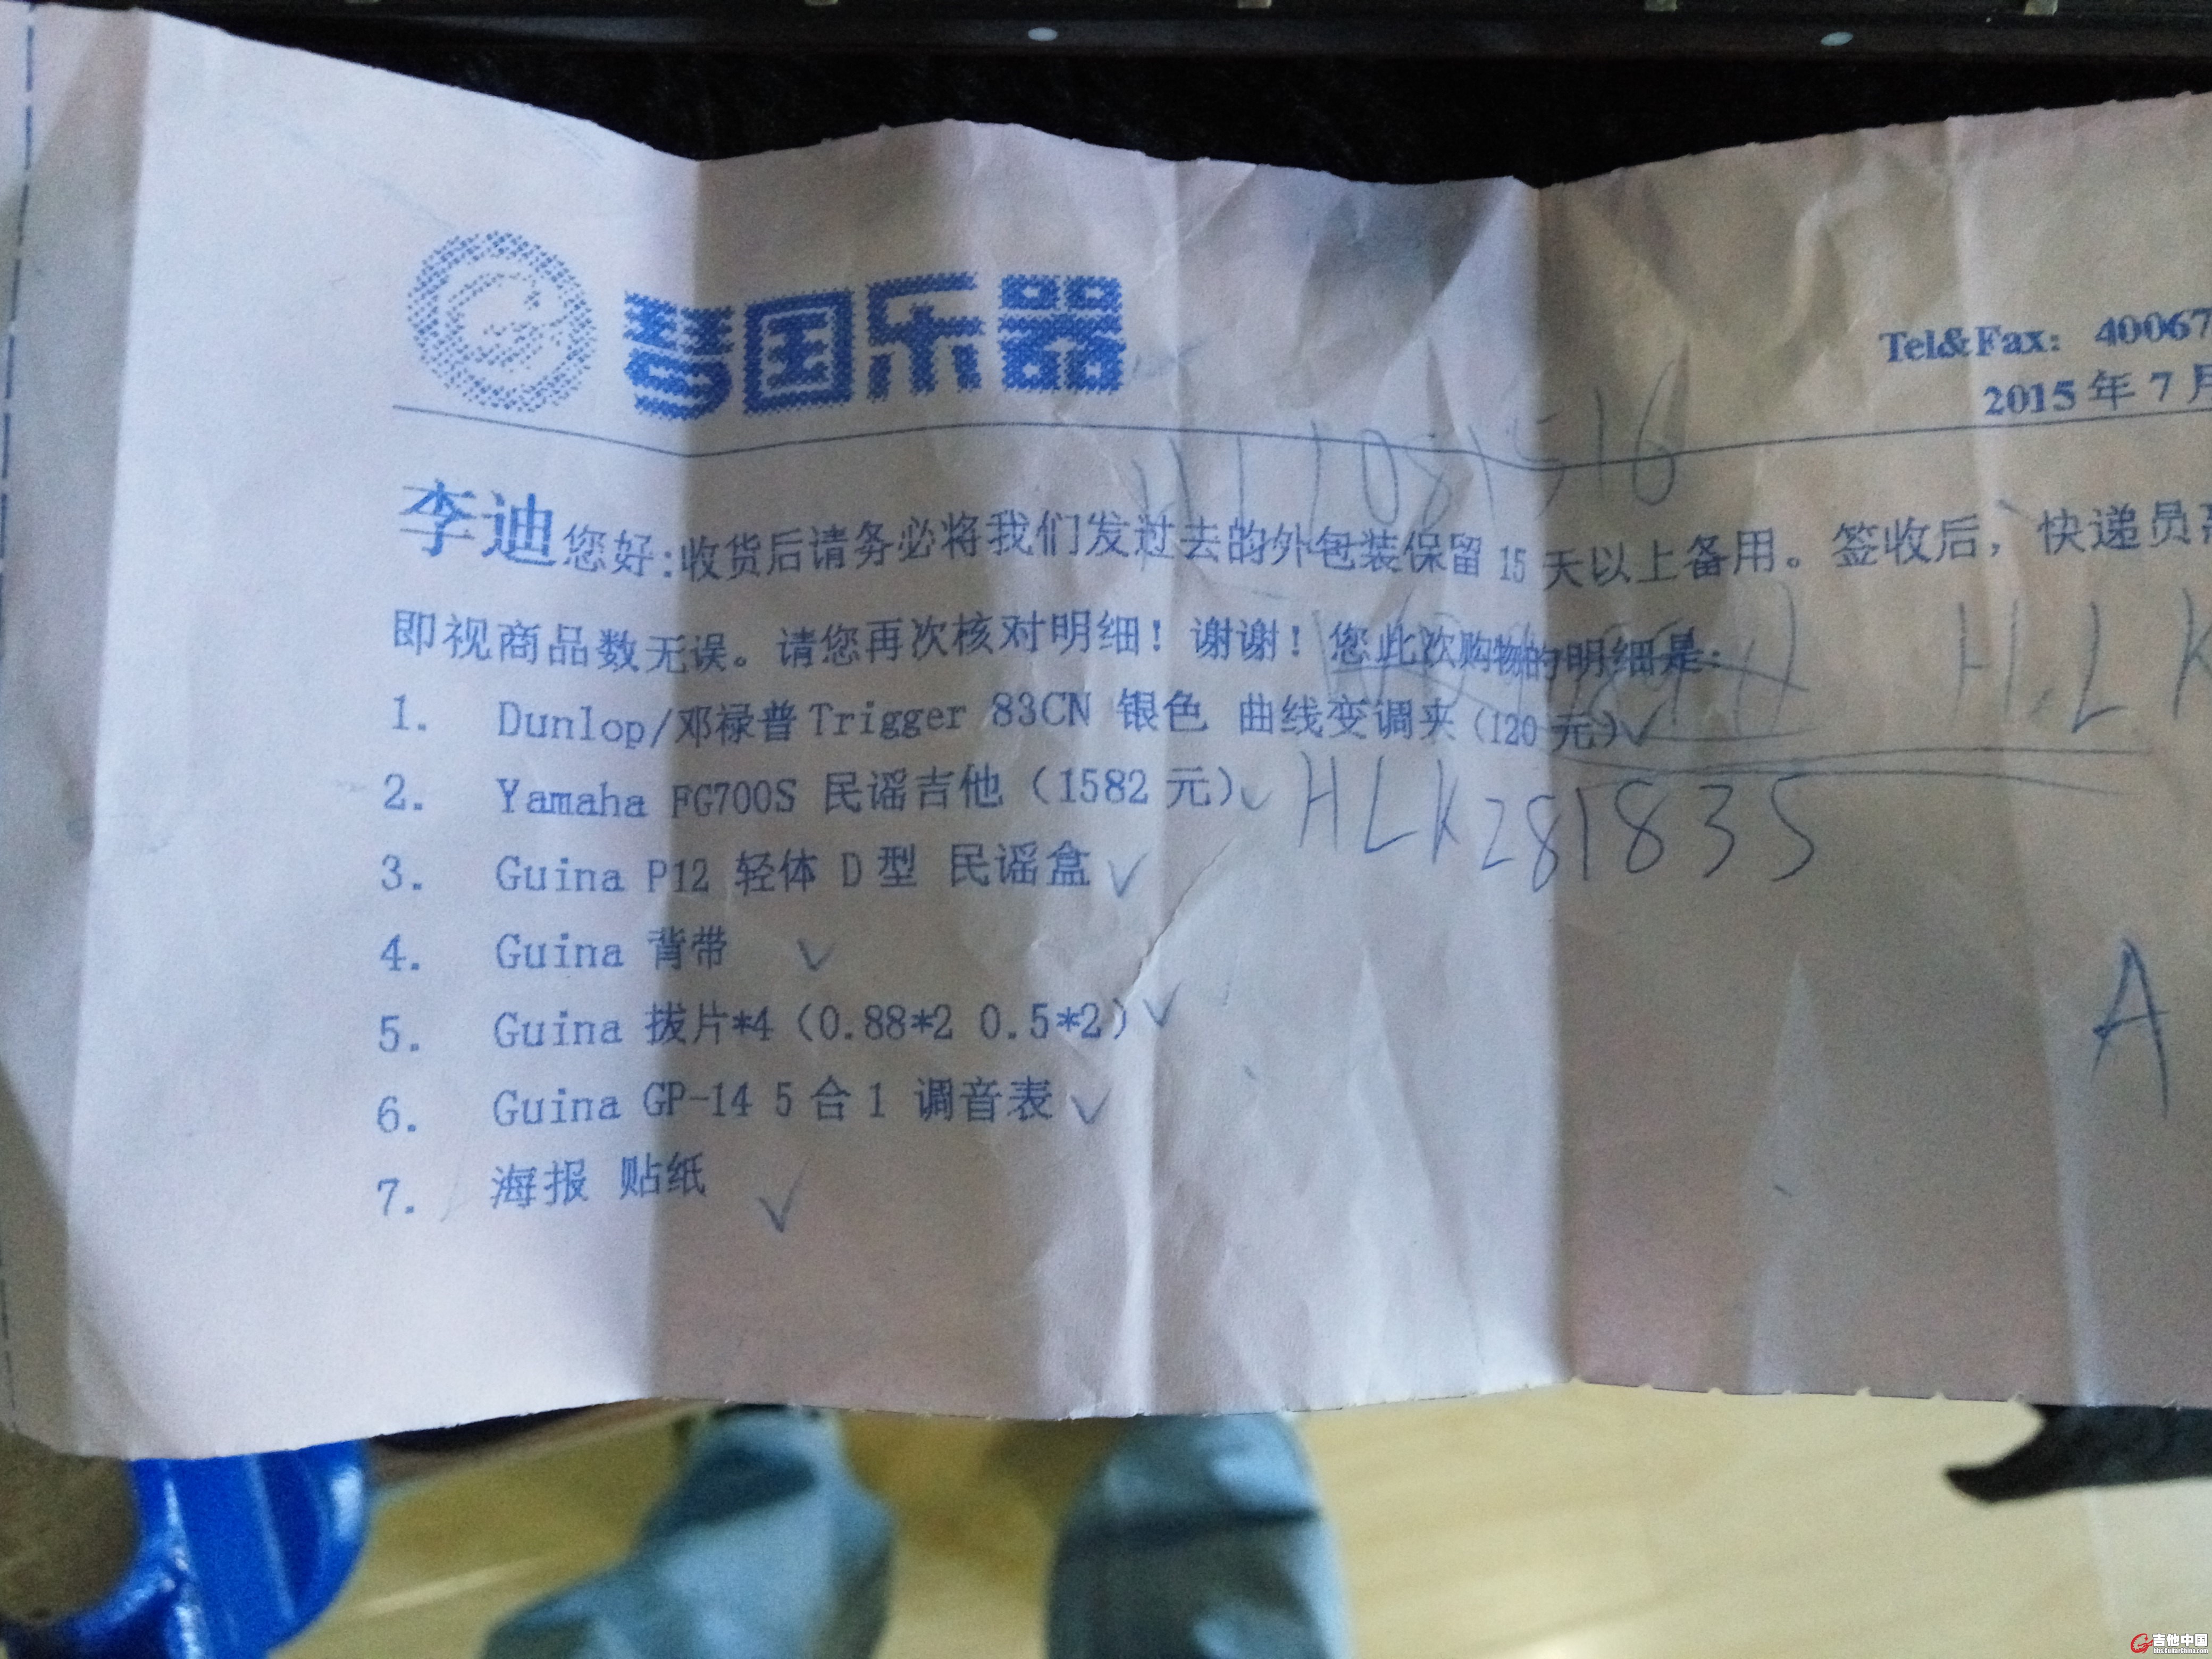 琴国乐器
Tel&Fax: 40067
2015 年 7 月
李迪您好:收货后请务必将我们发过去的外包装保留 15 天以上备用。签收后，快递员
即视商品数无误。请您再次核对明细！谢谢！您此次购物的明细是:
HLK
1. Dunlop/邓禄普 Trigger 83CN 银色 曲线变调夹(120 元)✓
2. Yamaha FG700S 民谣吉他（1582 元）✓ HLK281835
3. Guina P12 轻体 D 型 民谣盒 ✓
4. Guina 背带 ✓
A
5. Guina 拔片*4（0.88*2 0.5*2）✓
6. Guina GP-14 5 合 1 调音表 ✓
7. 海报 贴纸 ✓
吉他中国
bbs.GuitarChina.com